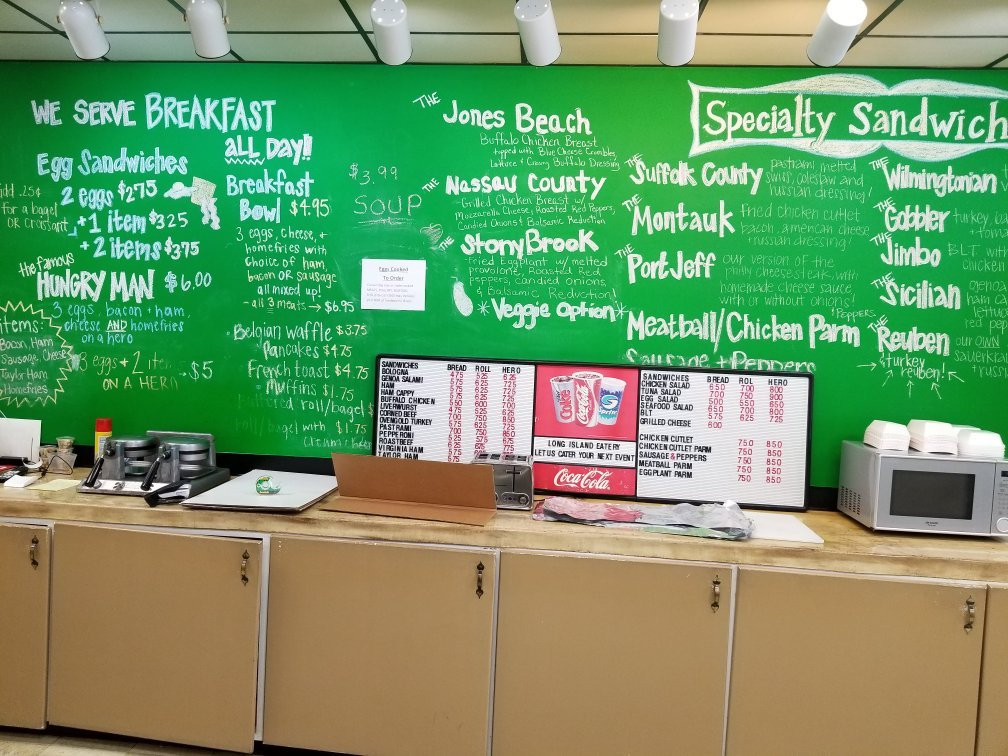 WE SERVE BREAKFAST
ALL DAY!!
Egg Sandwiches
2 eggs $2.75
+1 item $3.25
+2 items $3.75
add .25¢
for a bagel
OR croissant
the famous
HUNGRY MAN $6.00
3 eggs, bacon + ham,
cheese AND homefries
on a hero
items:
Bacon, Ham
Sausage, Cheese
Taylor Ham
Homefries
3 eggs + 2
ON A HERO
$5
Breakfast
Bowl $4.95
3 eggs, cheese, +
homefries with
choice of ham,
bacon OR sausage
all mixed up!
- all 3 meats → $6.95
Belgian Waffle $3.75
Pancakes $4.75
French toast $4.75
Muffins $1.75
roll/bagel $
bagel with $1.75
cream cheese
$3.99
SOUP
Eggs Cooked
To Order
THE Jones Beach
Buffalo Chicken Breast
topped with Blue Cheese Crumbles
Lettuce + Creamy Buffalo Dressing
THE Nassau County
Grilled Chicken Breast w/
Mozzarella Cheese, Roasted Red Peppers,
Candied Onions + Balsamic Reduction
THE Stony Brook
fried Eggplant w/ melted
provolone, Roasted Red
peppers, candied onions,
& Balsamic Reduction!
*Veggie option*
Specialty Sandwich
THE Suffolk County
pastrami, melted
swiss, coleslaw and
russian dressing!
THE Montauk
fried chicken cutlet
bacon, american cheese
+russian dressing!
THE Port Jeff
our version of the
philly cheesesteak with
homemade cheese sauce,
with or without onions!
+Peppers
Meatball/Chicken Parm
Sausage + Peppers
THE Wilmingtonian
THE Gobbler
turkey,
THE Jimbo
BLT with
chicken
THE Sicilian
ham
red
THE Reuben
our own
sauerkraut
→ turkey
reuben! ←
SANDWICHES BREAD ROLL HERO
BOLOGNA 475 525 625
GENOA SALAMI 575 625 725
HAM 575 625 725
HAM CAPPY
BUFFALO CHICKEN
LIVERWURST
CORNED BEEF
OVENGOLD TURKEY
PASTRAMI
PEPPERONI
ROAST BEEF
VIRGINIA HAM
TAYLOR HAM
Coke
Coca-Cola
Sprite
LONG ISLAND EATERY
LET US CATER YOUR NEXT EVENT
Coca-Cola
SANDWICHES BREAD ROLL HERO
CHICKEN SALAD 650 700 800
TUNA SALAD 700 750 900
EGG SALAD 500 550 650
SEAFOOD SALAD 650 700 800
BLT 575 625 725
GRILLED CHEESE 600
CHICKEN CUTLET 750 850
CHICKEN CUTLET PARM 750 850
SAUSAGE & PEPPERS 750 850
MEATBALL PARM 750 850
EGGPLANT PARM 750 850